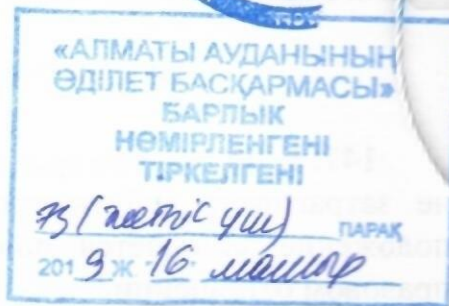 «АЛМАТЫ АУДАНЫНЫҢ
ӘДІЛЕТ БАСҚАРМАСЫ»
БАРЛЫҚ
НӨМІРЛЕНГЕНІ
ТІРКЕЛГЕНІ
73 (жетпіс үш) ПАРАҚ
2019 Ж. 16 мамыр